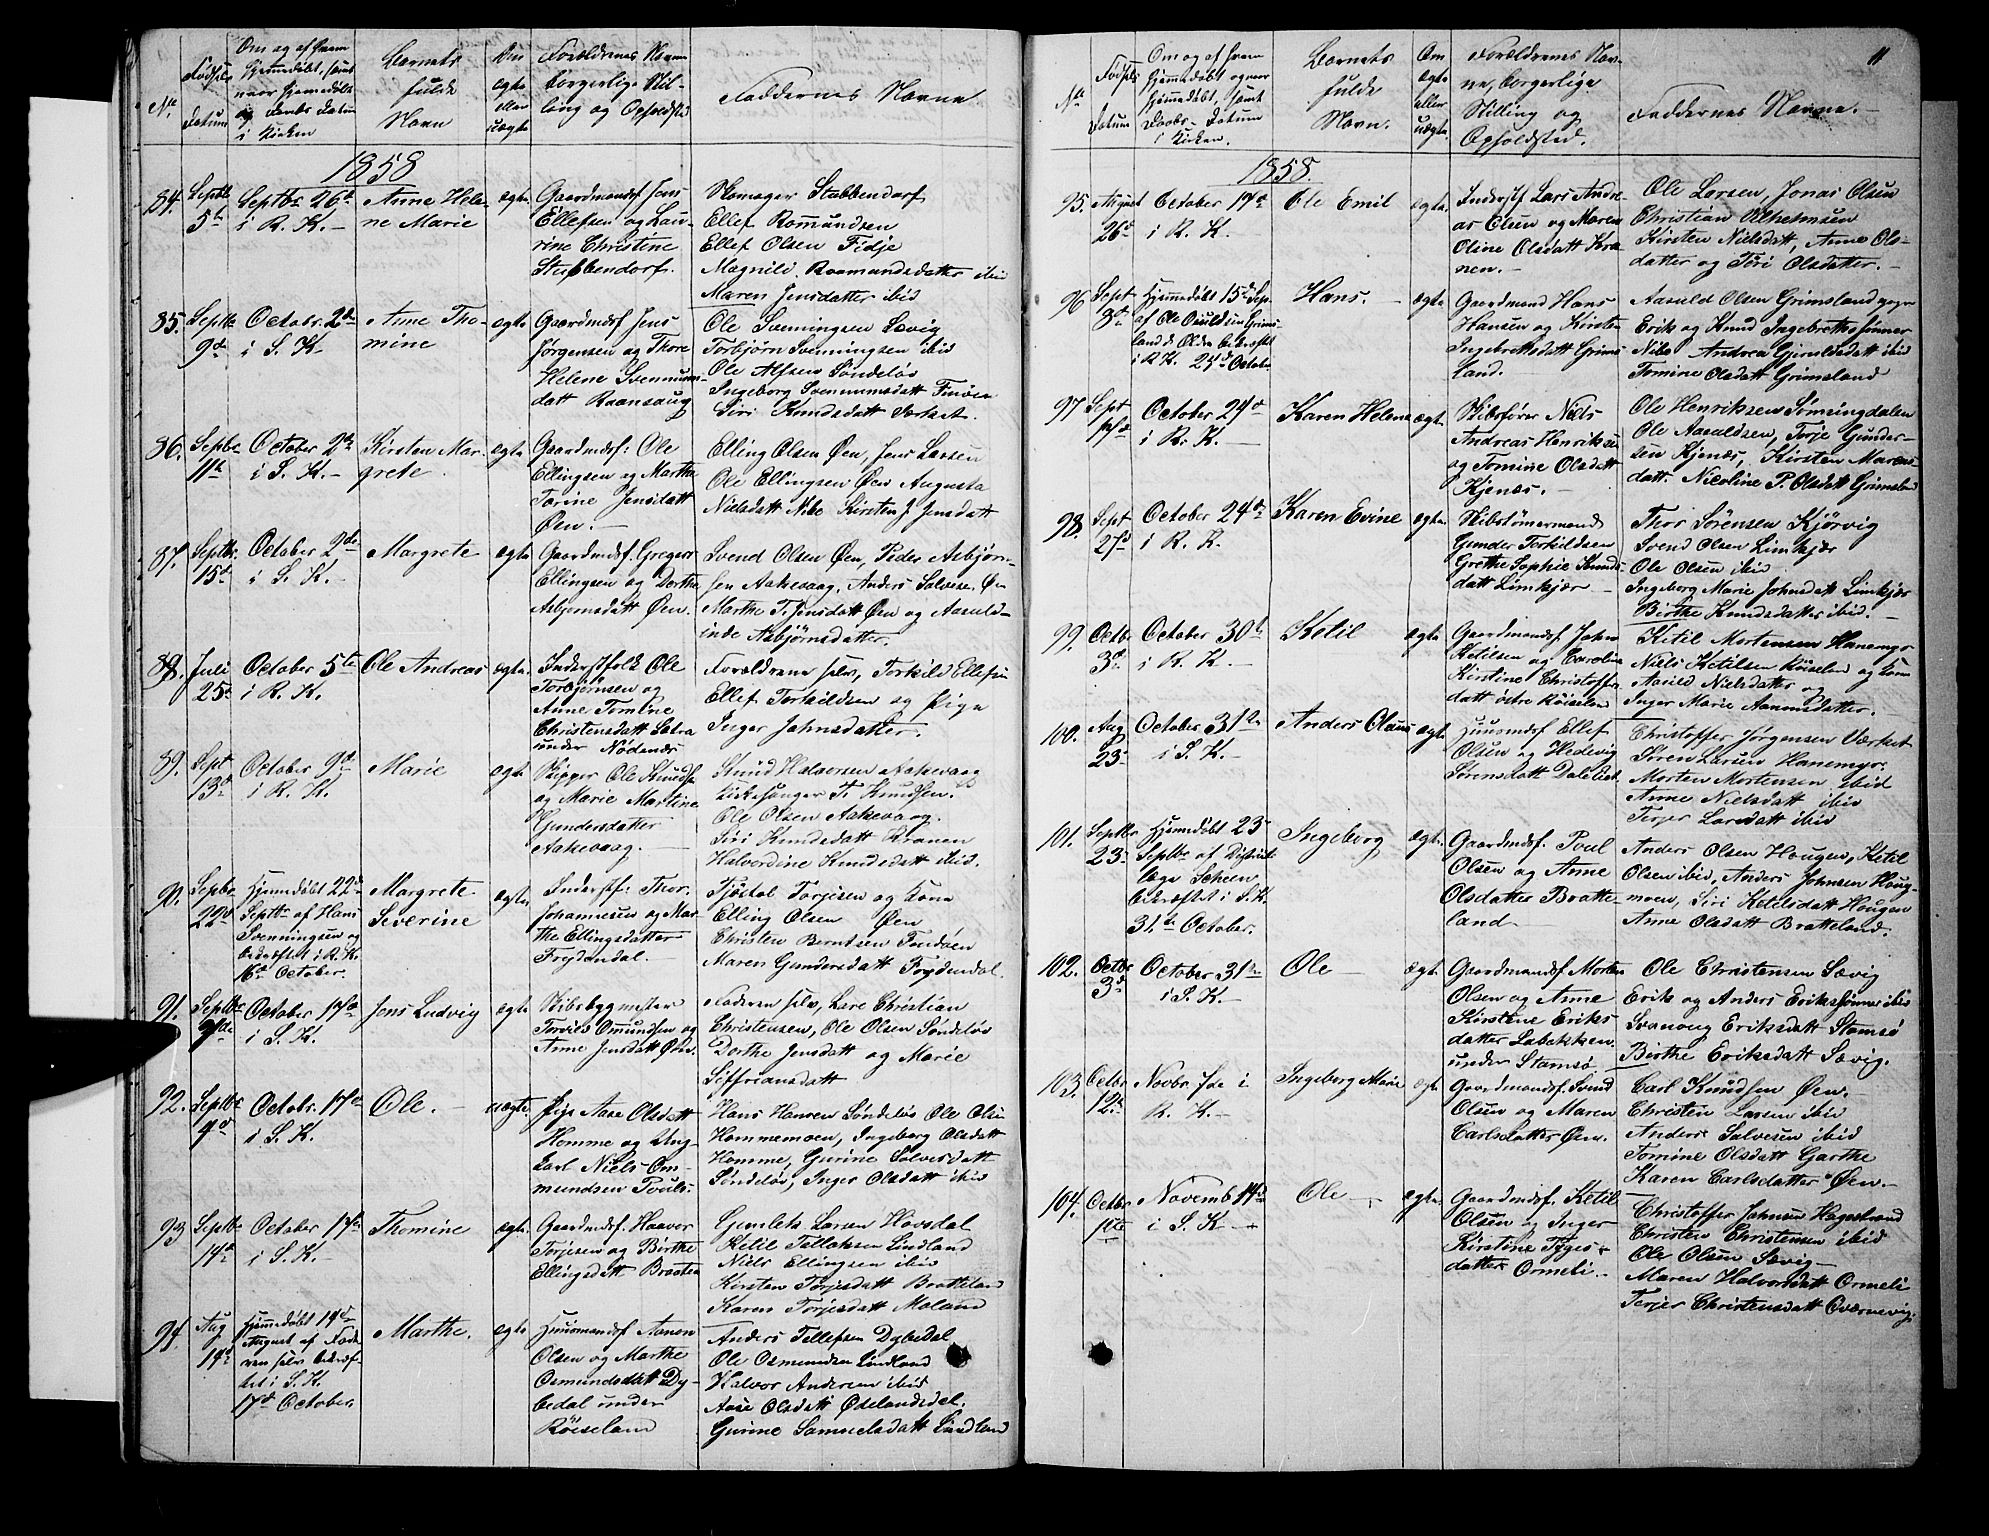 11
No.
Fødsels Datum
Om og af hvem hjemmedøbt, samt naar hjemmedøbt og Daabs Datum i Kirken
Barnets fulde Navn
Om ægte eller uægte
Forældrenes Navne borgerlige Stilling og Opholdsted
Faddernes Navne
1858
84. Septbr 5te
Septbr. 26de i R. K.
Anne Helene Marie
ægte
Gaardmandsf. Jens
Ellefsen og Laurine Christine
Stubbendorf.
Skomager Stubbendorf
Ellef Romundsen
Ellef Olsen Fidje
Magnild Roamundsdatter ibid
Maren Jensdatter ibid
85. Septbr 9de
Octobr. 2den i S. K.
Anne Thomine
ægte
Gaardmdsf. Jens
Jørgensen og Thore
Helene Svennumsdatt
Ole Svenningsen Sævig
Torbjørn Svenningsen ibid
Ole Alfsen Søndeløv
Ingeborg Svennumsdatt
Siri Knudsdatt Værket.
86. Septbr 11te
October 2den i S. K.
Kirsten Margrete
ægte
Gaardmdsf: Ole
Ellingsen og Marthe
Torine Jensdatt
Øen.
Elling Olsen Øen, Jens Larsen
Ole Ellingsen Øen Augusta
Nielsdatt Nibe Kirsten J. Jensdatt
87. Septbr. 15de
October 2den i S. K.
Margrete
ægte
Gaardmdsf. Gregers
Ellingsen og Dorthe
Asbjørnsdatt Øen.
Svend Olsen Øen, Peder Asbjørnsen Aakevaag, Anders Salvese. Øen
Marthe T. Jensdatt Øen og Aasuldinde Asbjørnsdatter.
88. Juli 25de
October 5te i R. K.
Ole Andreas
ægte
Inderstfolk Ole
Torbjørnsen og
Anne Tomine
Christensdatt
under Nødenes
Forældrene selv, Torkild Ellefsen
Ellef Torkildsen og Pige
Inger Johnsdatter.
89. Sept 13de
October 9de i R. K.
Marie
ægte
Skipper Ole Knudsen
og Marie Martine
Gundersdatter
Aakevaag.
Knud Halvorsen Aakevaag
Kirkesanger T. Knudsen.
Ole Olsen Aakevaag.
Siri Knudsdatt Kranen
Halvordine Knudsdatt ibid.
90. Septbr 22de
Hjemmedøbt 22de
Septbr af Hans
Svenningsen og
bekræftet i R. K.
16de October.
Margrete
Severine
ægte
Inderstf: Thor
Johannesen og Marthe Ellingsdatter
Frydendal.
Tjøstol Torjesen og Kone
Elling Olsen Øen
Christen Berntsen
Maren Gundersdatt Frydendal.
91. Septbr
October 17de i S. K.
Jens Ludvig
ægte
Skibsbygmester
Torvils Omundsen og
Anne Jensdatt Øen.
Faderen selv, Lars Christian
Christensen, Ole Olsen Søndeløv
Dorthe Jensdatt og Marie
Siffriansdatt
92. Septbr 4de
Octobr. 17de i S. K.
Ole.
uægte.
Pige Aase Olsdatt
Homme og Ungkarl Niels Ommundsen Pouls.
Hans Hansen Søndeløv Ole Olsen
Hommemoen, Ingeborg Olsdatt
Homme, Gurine Salvesdatt
Søndeløv, Inger Olsdatt ibid
93. Septbr 14de
October 17de i S. K.
Thomine
ægte.
Gaardmdsf. Haavor
Torjesen og Birthe
Ellingsdatt Braaten
Gunlek Larsen Hovdal
Ketil Tellaksen Lindland
Niels Ellingsen ibid
Kirsten Torjesdatt Bratteland
Karen Torjesdatt Moland
94. Aug 14de
Hjemmedøbt 14de
August af Faderen selv bekræftet i S. K.
17de October.
Marthe.
ægte
Huusmandsf. Aanon
Olsen og Marthe
Osmundsdatt Dybedal under
Røiseland
Anders Tellefsen Dybedal
Ole Osmundsen Lindland
Halvor Andersen ibid
Aase Olsdatt Ødelandsdal.
Gurine Samuelsdatt Lindland
No.
Fødsels Datum
Om og af hvem hjemmedøbt og naar hjemmedøbt, samt Daabs-Datum i Kirken.
Barnets fulde Navn.
Om ægte eller uægte.
Forældrenes Navne, borgerlige Stilling og Opholdsted.
Faddernes Navne.
1858.
95. August 26de
October 17de i R. K.
Ole Emil
ægte.
Inderstf Lars Andreas Olsen og Maren
Oline Olsdatt Kranen.
Ole Larsen, Jonas Olsen
Christian Vilhelmsen
Kirsten Nielsdatt, Anne Olsdatter og Tøri Olsdatter.
96. Sept 3de
Hjemmedøbt 15de Sep.
af Ole Osuldsen Grimsland bekræftet
i R. K. 25de October
Hans.
ægte
Gaardmand Hans
Hansen og Kirsten
Ingebretsdatt Grimsland.
Aasuld Olsen Grimsland
Erik og Knud Ingebretssønner
Nibe Andrea Gjeruldsdatt ibid
Tomine Olsdatt Grimsland
97. Sept
October 24de i R. K.
Karen Helene
ægte.
Skibsfører Niels
Andreas Henriksen
og Tomine Olsdatt
Kjenæs.
Ole Henriksen Sømingdalen
Ole Aasuldsen, Torje Gundersen Kjenæs, Kirsten Marensdatt. Nicoline P. Olsdatt Grimsland
98. Sept 27de
October 24de i R. K.
Karen Evine
ægte.
Skibstømermand
Gunder Terkildsen
Grethe Sophie Knudsdatt Limkjær
Thor Sørensen Kjørvig
Svend Olsen Limkjær
Ole Olsen ibid
Ingeborg Marie Johnsdatt Limkjær
Birthe Knudsdatter ibid.
99. Octbr 3de
October 30te i R. K.
Ketil
ægte
Gaardmandsf. John
Ketilsen og Caroline
Kirstine Christoffersdatt østre Røiselan
Ketil Mortensen Hanemyr
Niels Ketilsen Røiselan og Kone
Aasild Nielsdatter og
Inger Marie Aanunsdatter.
100. Aug 23de
October 31te i S. K.
Anders Olaus
ægte.
Huusmdsf Ellef
Olsen og Hedevig
Sørensdatt Dalelid.
Christoffer Jørgensen Værket
Søren Larsen Hanemyr.
Morten Mortensen ibid
Anne Nielsdatt ibid
Terjer Larsdatt ibid
101. Septbr 23de
Hjemmedøbt 23de
Septbr af Distriktslæge Scheen
bekræftet i S. K.
31te October.
Ingeborg
ægte
Gaardmdsf. Poul
Olsen og Anne
Olsdatter Bratteland
Anders Olsen Hougen, Ketil
Olsen ibid, Anders Johnsen Hougmoen, Siri Ketilsdatt Hougen
Anne Olsdatt Bratteland.
102. Octbr 3de
October 31te i S. K.
Ole
ægte.
Gaardmandsf Morten
Olsen og Anne
Kirstene Eriksdatter Labekken
under Stamsø.
Ole Christensen Sævig
Erik og Anders Erikssønner ibid
Svanoug Eriksdatt Stamsø
Birthe Eriksdatt Sævig.
103. Octbr 12te
Novbr. 7de i R. K.
Ingeborg Marie
ægte
Gaardmandsf. Svend
Olsen og Maren
Carlsdatter Øen.
Carl Knudsen Øen.
Christen Larsen ibid
Anders Salvesen ibid
Tomine Olsdatt Garthe
Karen Carlsdatter Øen.
104. Octbr
Novemb 14de i S. K.
Ole
ægte.
Gaardmdsf. Ketil
Olsen og Inger
Kirstine Tygesdatter Ormeli.
Christoffer Johnsen Hagestrand
Christen Christensen ibid
Ole Olsen Sævig
Maren Halvorsdatt Ormeli
Terjer Christensdatt Qværnevig.